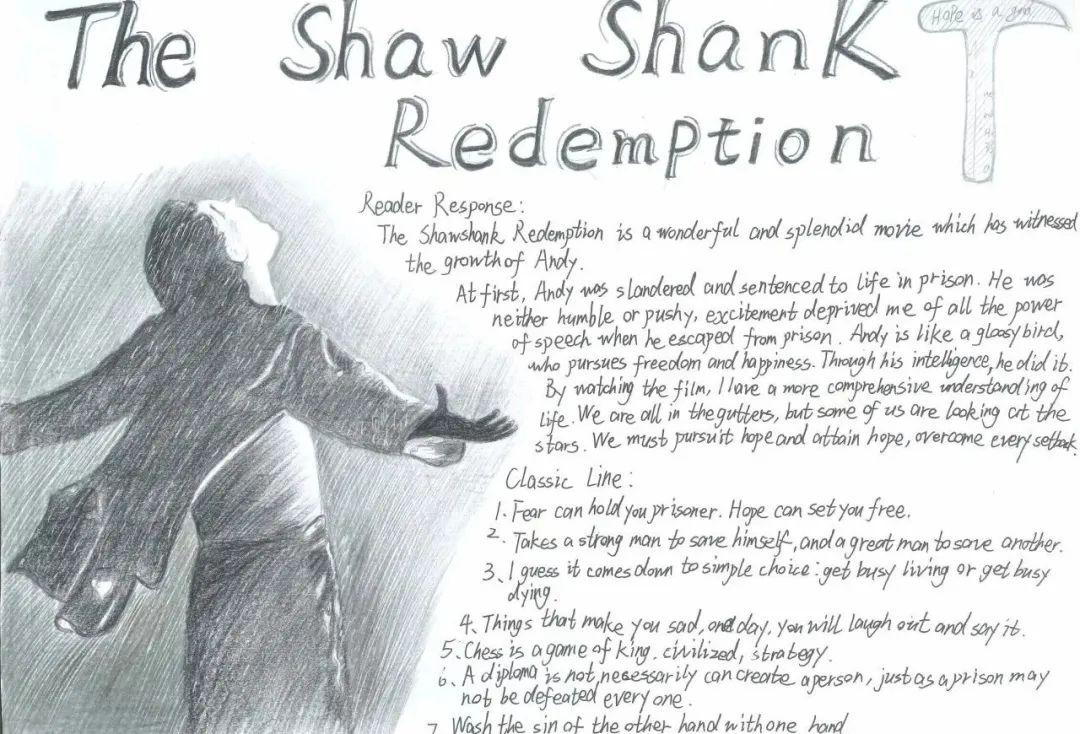 The Shaw Shank
Redemption
Hope is a
Reader Response:
The Shawshank Redemption is a wonderful and splendid movie which has witnessed
the growth of Andy.
At first, Andy was slandered and sentenced to life in prison. He was
neither humble or pushy, excitement deprived me of all the power
of speech when he escaped from prison. Andy is like a glossy bird,
who pursues freedom and happiness. Through his intelligence, he did it.
By watching the film, I have a more comprehensive understanding of
life. We are all in the gutters, but some of us are looking at the
stars. We must pursuit hope and attain hope, overcome every setback.
Classic Line:
1. Fear can hold you prisoner. Hope can set you free.
2. Takes a strong man to save himself, and a great man to save another.
3、I guess it comes down to simple choice: get busy living or get busy
dying.
4、Things that make you sad, one day, you will laugh out and say it.
5、Chess is a game of king. civilized, strategy.
6、A diploma is not, necessarily can create a person, just as a prison may
not be defeated every one.
7 Wash the sin of the other hand with one hand